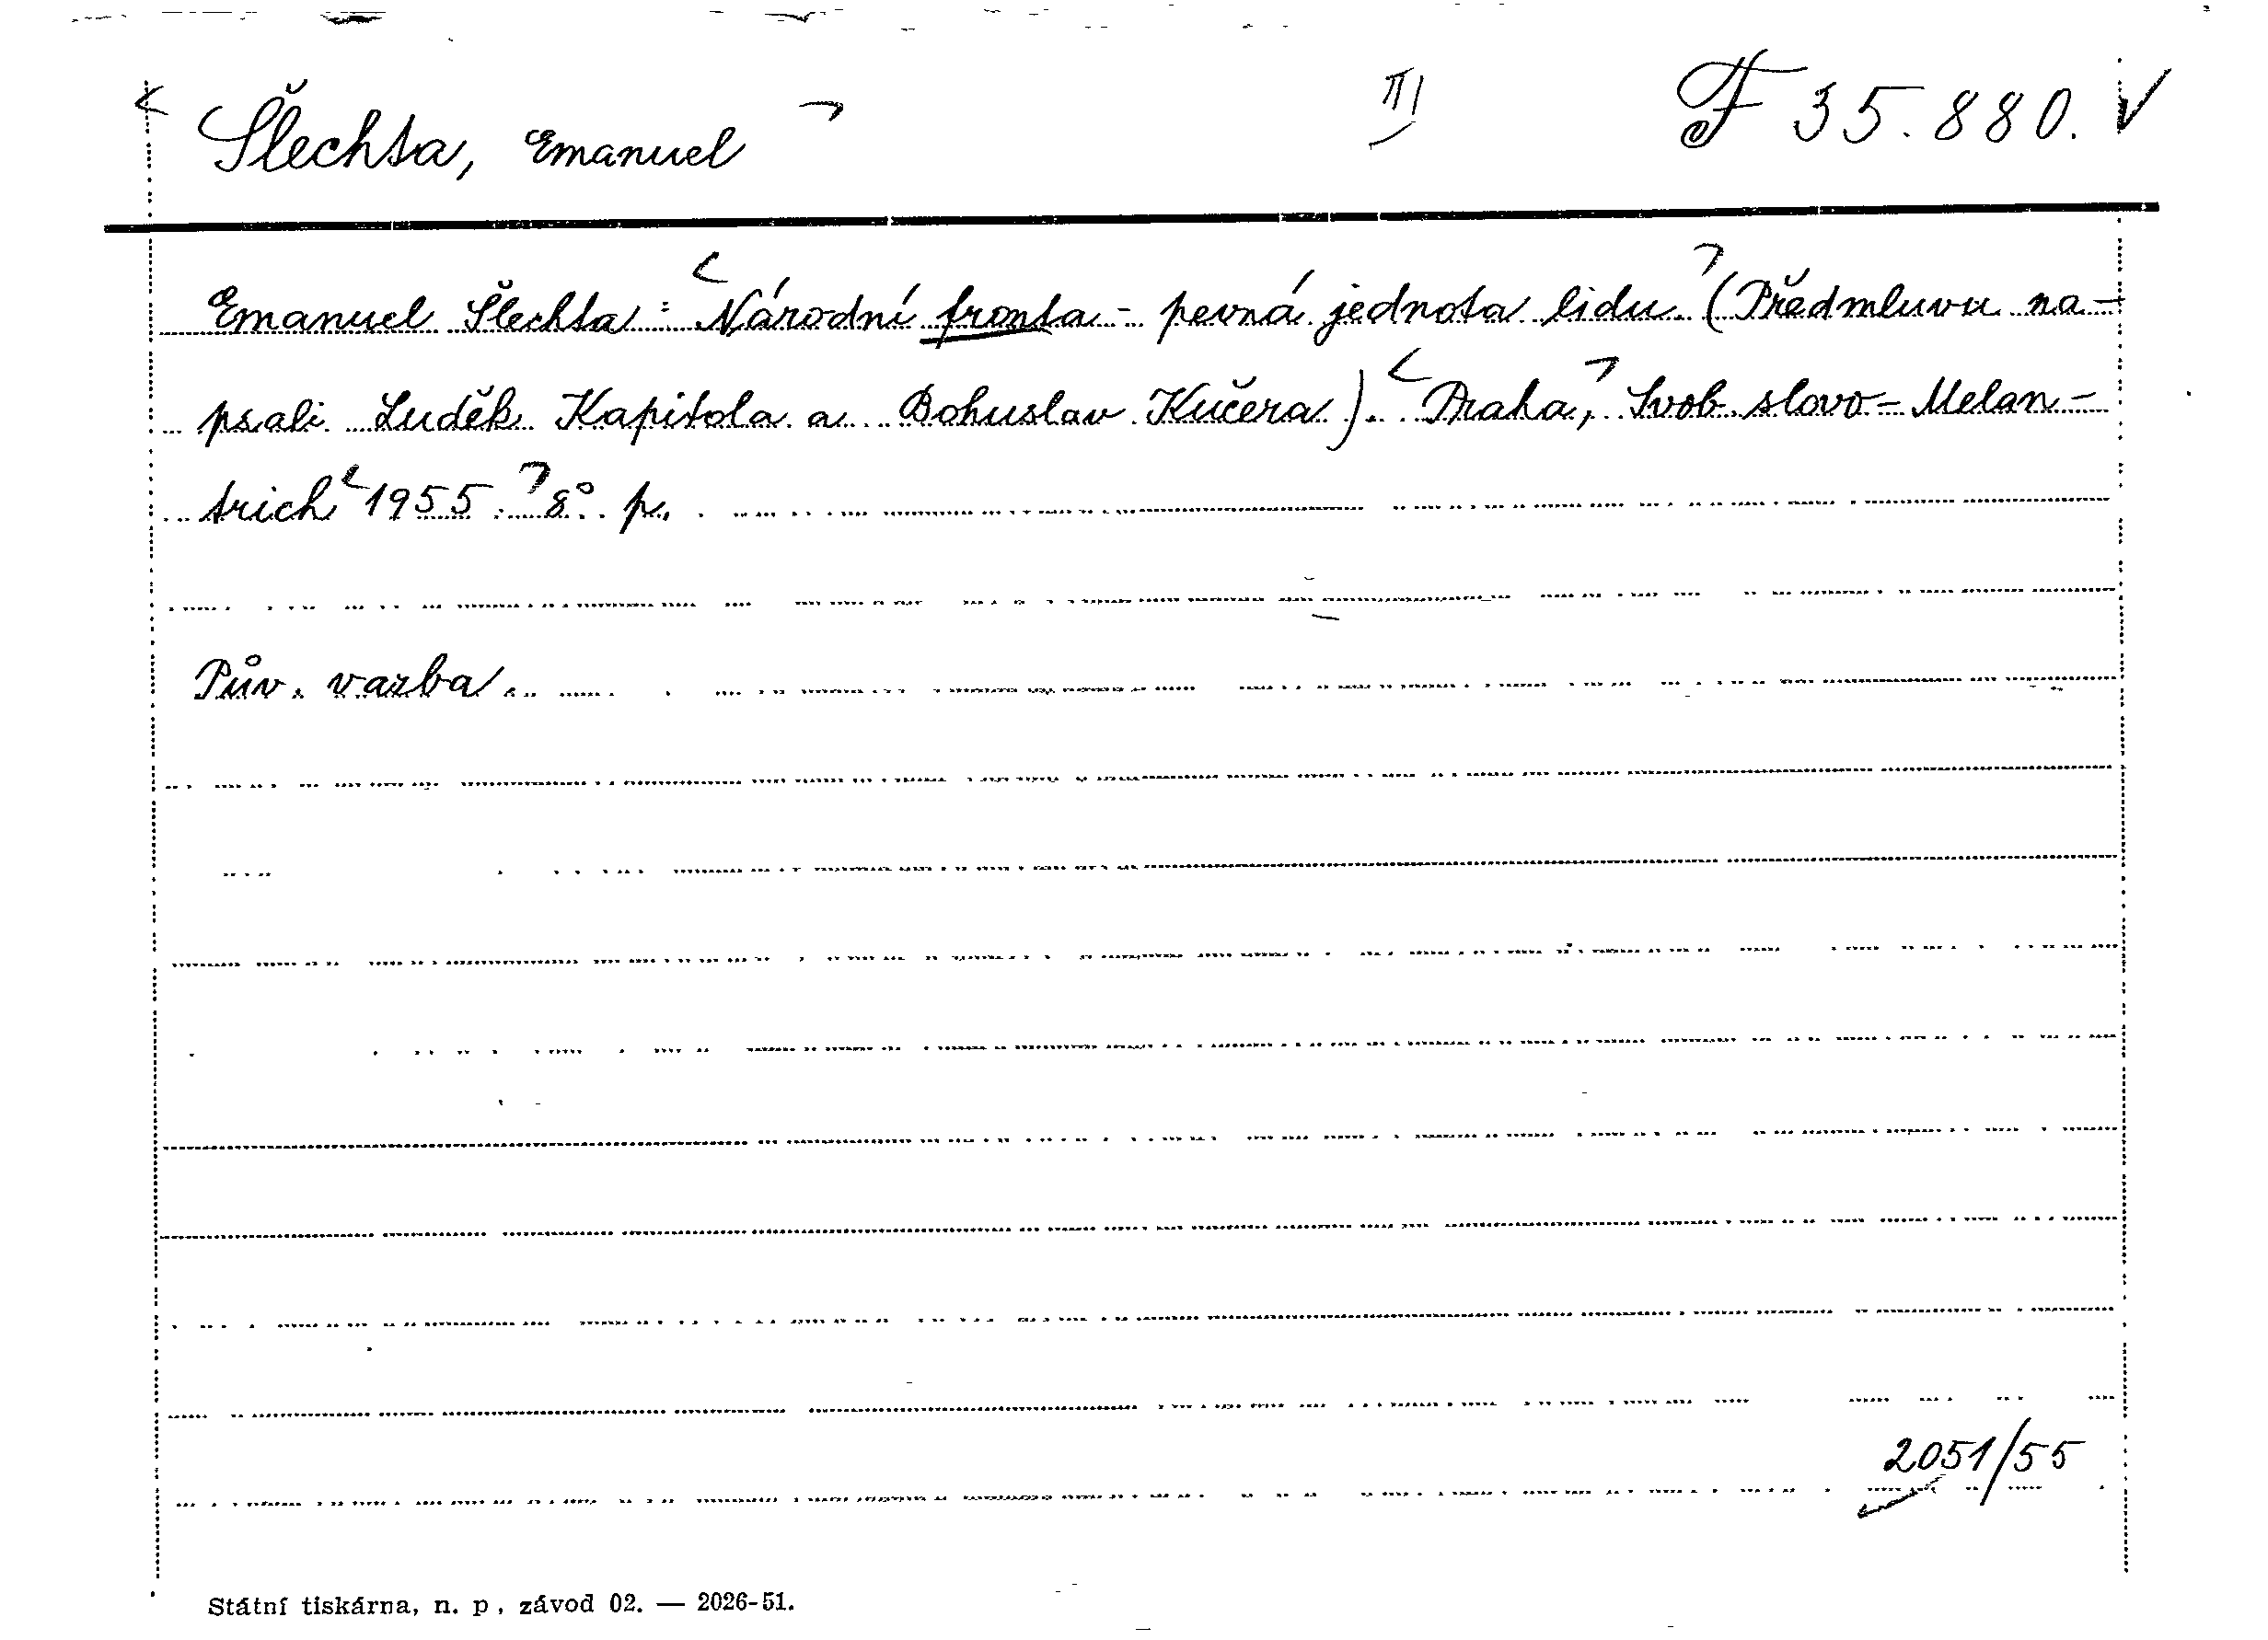 Šlechta, Emanuel II/ F 35.880.
Emanuel Šlechta: Národní fronta - pevná jednota lidu. (Předmluvu na-
psali Luděk Kapitola a Bohuslav Kučera). Praha, Svob. slovo - Melan-
trich 1955. 8° p.
Pův. vazba.
2051/55
Státní tiskárna, n. p., závod 02. — 2026-51.